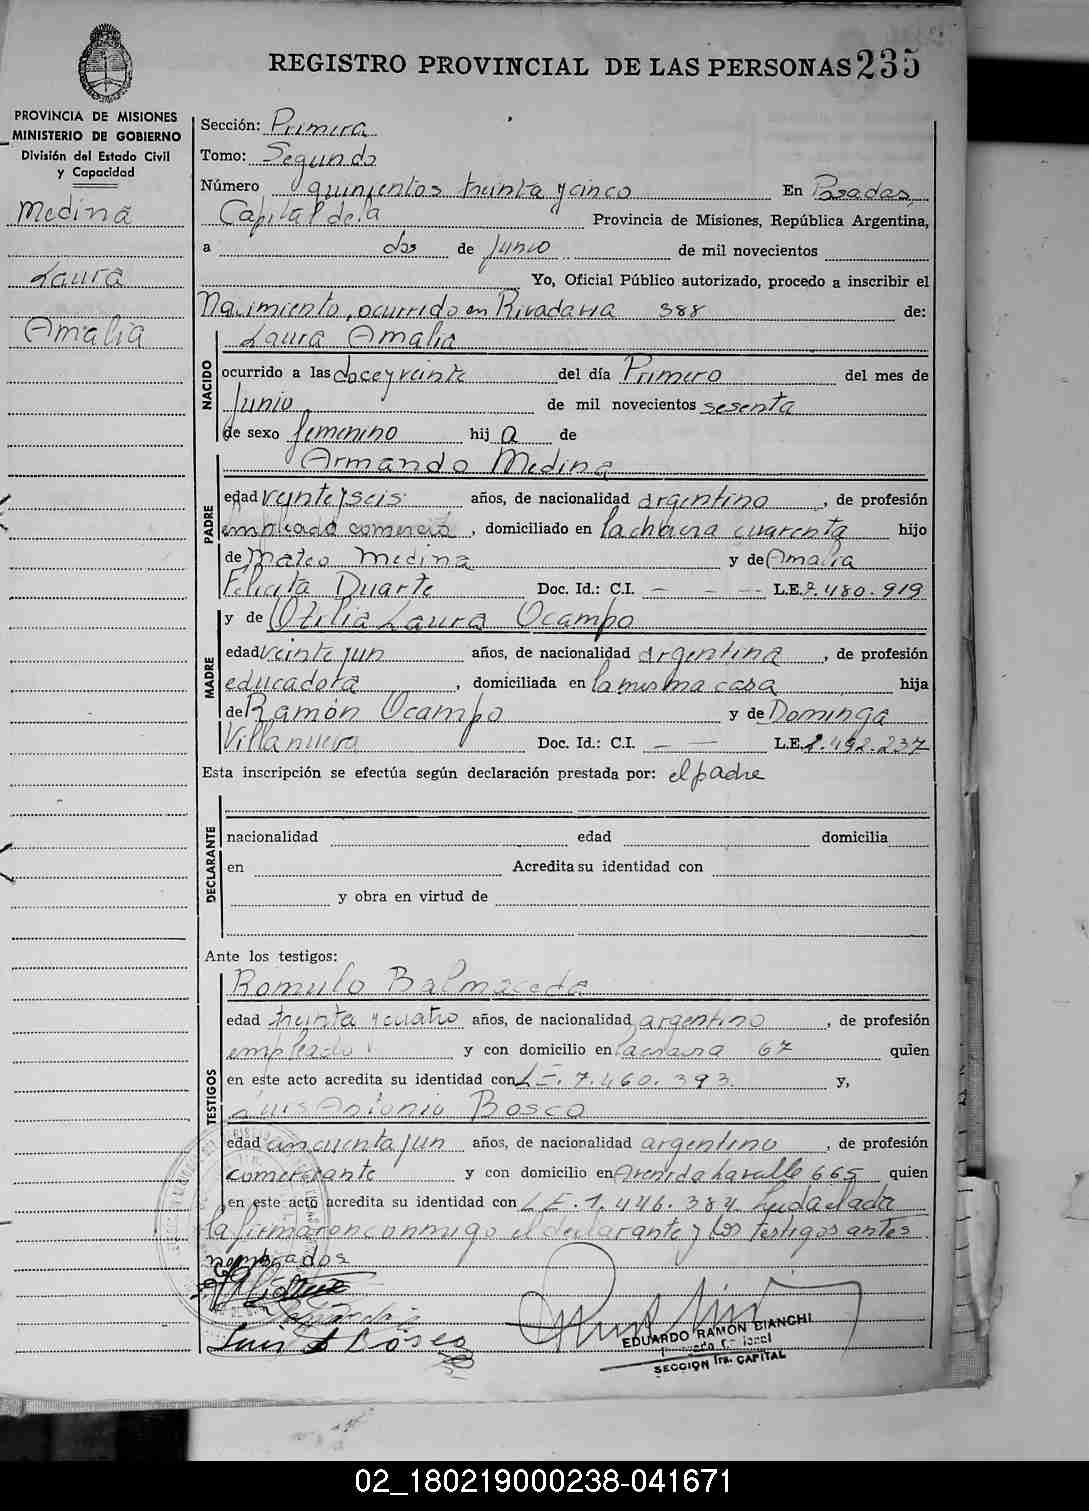 REGISTRO PROVINCIAL DE LAS PERSONAS 235
PROVINCIA DE MISIONES
MINISTERIO DE GOBIERNO
División del Estado Civil
y Capacidad
Medina
Laura
Amalia
Sección: Primera
Tomo: Segundo
Número quinientos treinta y cinco En Posadas,
Capital de la Provincia de Misiones, República Argentina,
a dos de Junio de mil novecientos
Yo, Oficial Público autorizado, procedo a inscribir el
Nacimiento, ocurrido en Rivadavia 388 de:
NACIDO
Laura Amalia
ocurrido a las doce y veinte del día Primero del mes de
Junio de mil novecientos sesenta
de sexo femenino hij a de
PADRE
Armando Medina
edad veintey seis años, de nacionalidad argentino, de profesión
empleado comercio, domiciliado en la chacra cuarenta hijo
de Mateo Medina y de Amalia
Felicita Duarte Doc. Id.: C.I. - - -- L.E. 7.480.919
y de Otilia Laura Ocampo
MADRE
edad veinte y un años, de nacionalidad argentina, de profesión
educadora, domiciliada en la misma casa hija
de Ramón Ocampo y de Dominga
Villanueva Doc. Id.: C.I. - - L.E. 2.492.237
Esta inscripción se efectúa según declaración prestada por: el padre
DECLARANTE
nacionalidad edad domicilia
en Acredita su identidad con
y obra en virtud de
Ante los testigos:
TESTIGOS
Romulo Balmaceda
edad treinta y cuatro años, de nacionalidad argentino, de profesión
empleado y con domicilio en la chacra 67 quien
en este acto acredita su identidad con L.E. 7.460.393. y,
Luis Antonio Bosco
edad cincuenta y un años, de nacionalidad argentino, de profesión
comerciante y con domicilio en Avenida Lavalle 665 quien
en este acto acredita su identidad con L.E. 1.446.384. Leida el acta
la firmaron conmigo el declarante y los testigos antes
nombrados
Luis A Bosco
EDUARDO RAMON BIANCHI
SECCION 1ra. CAPITAL
02_180219000238-041671